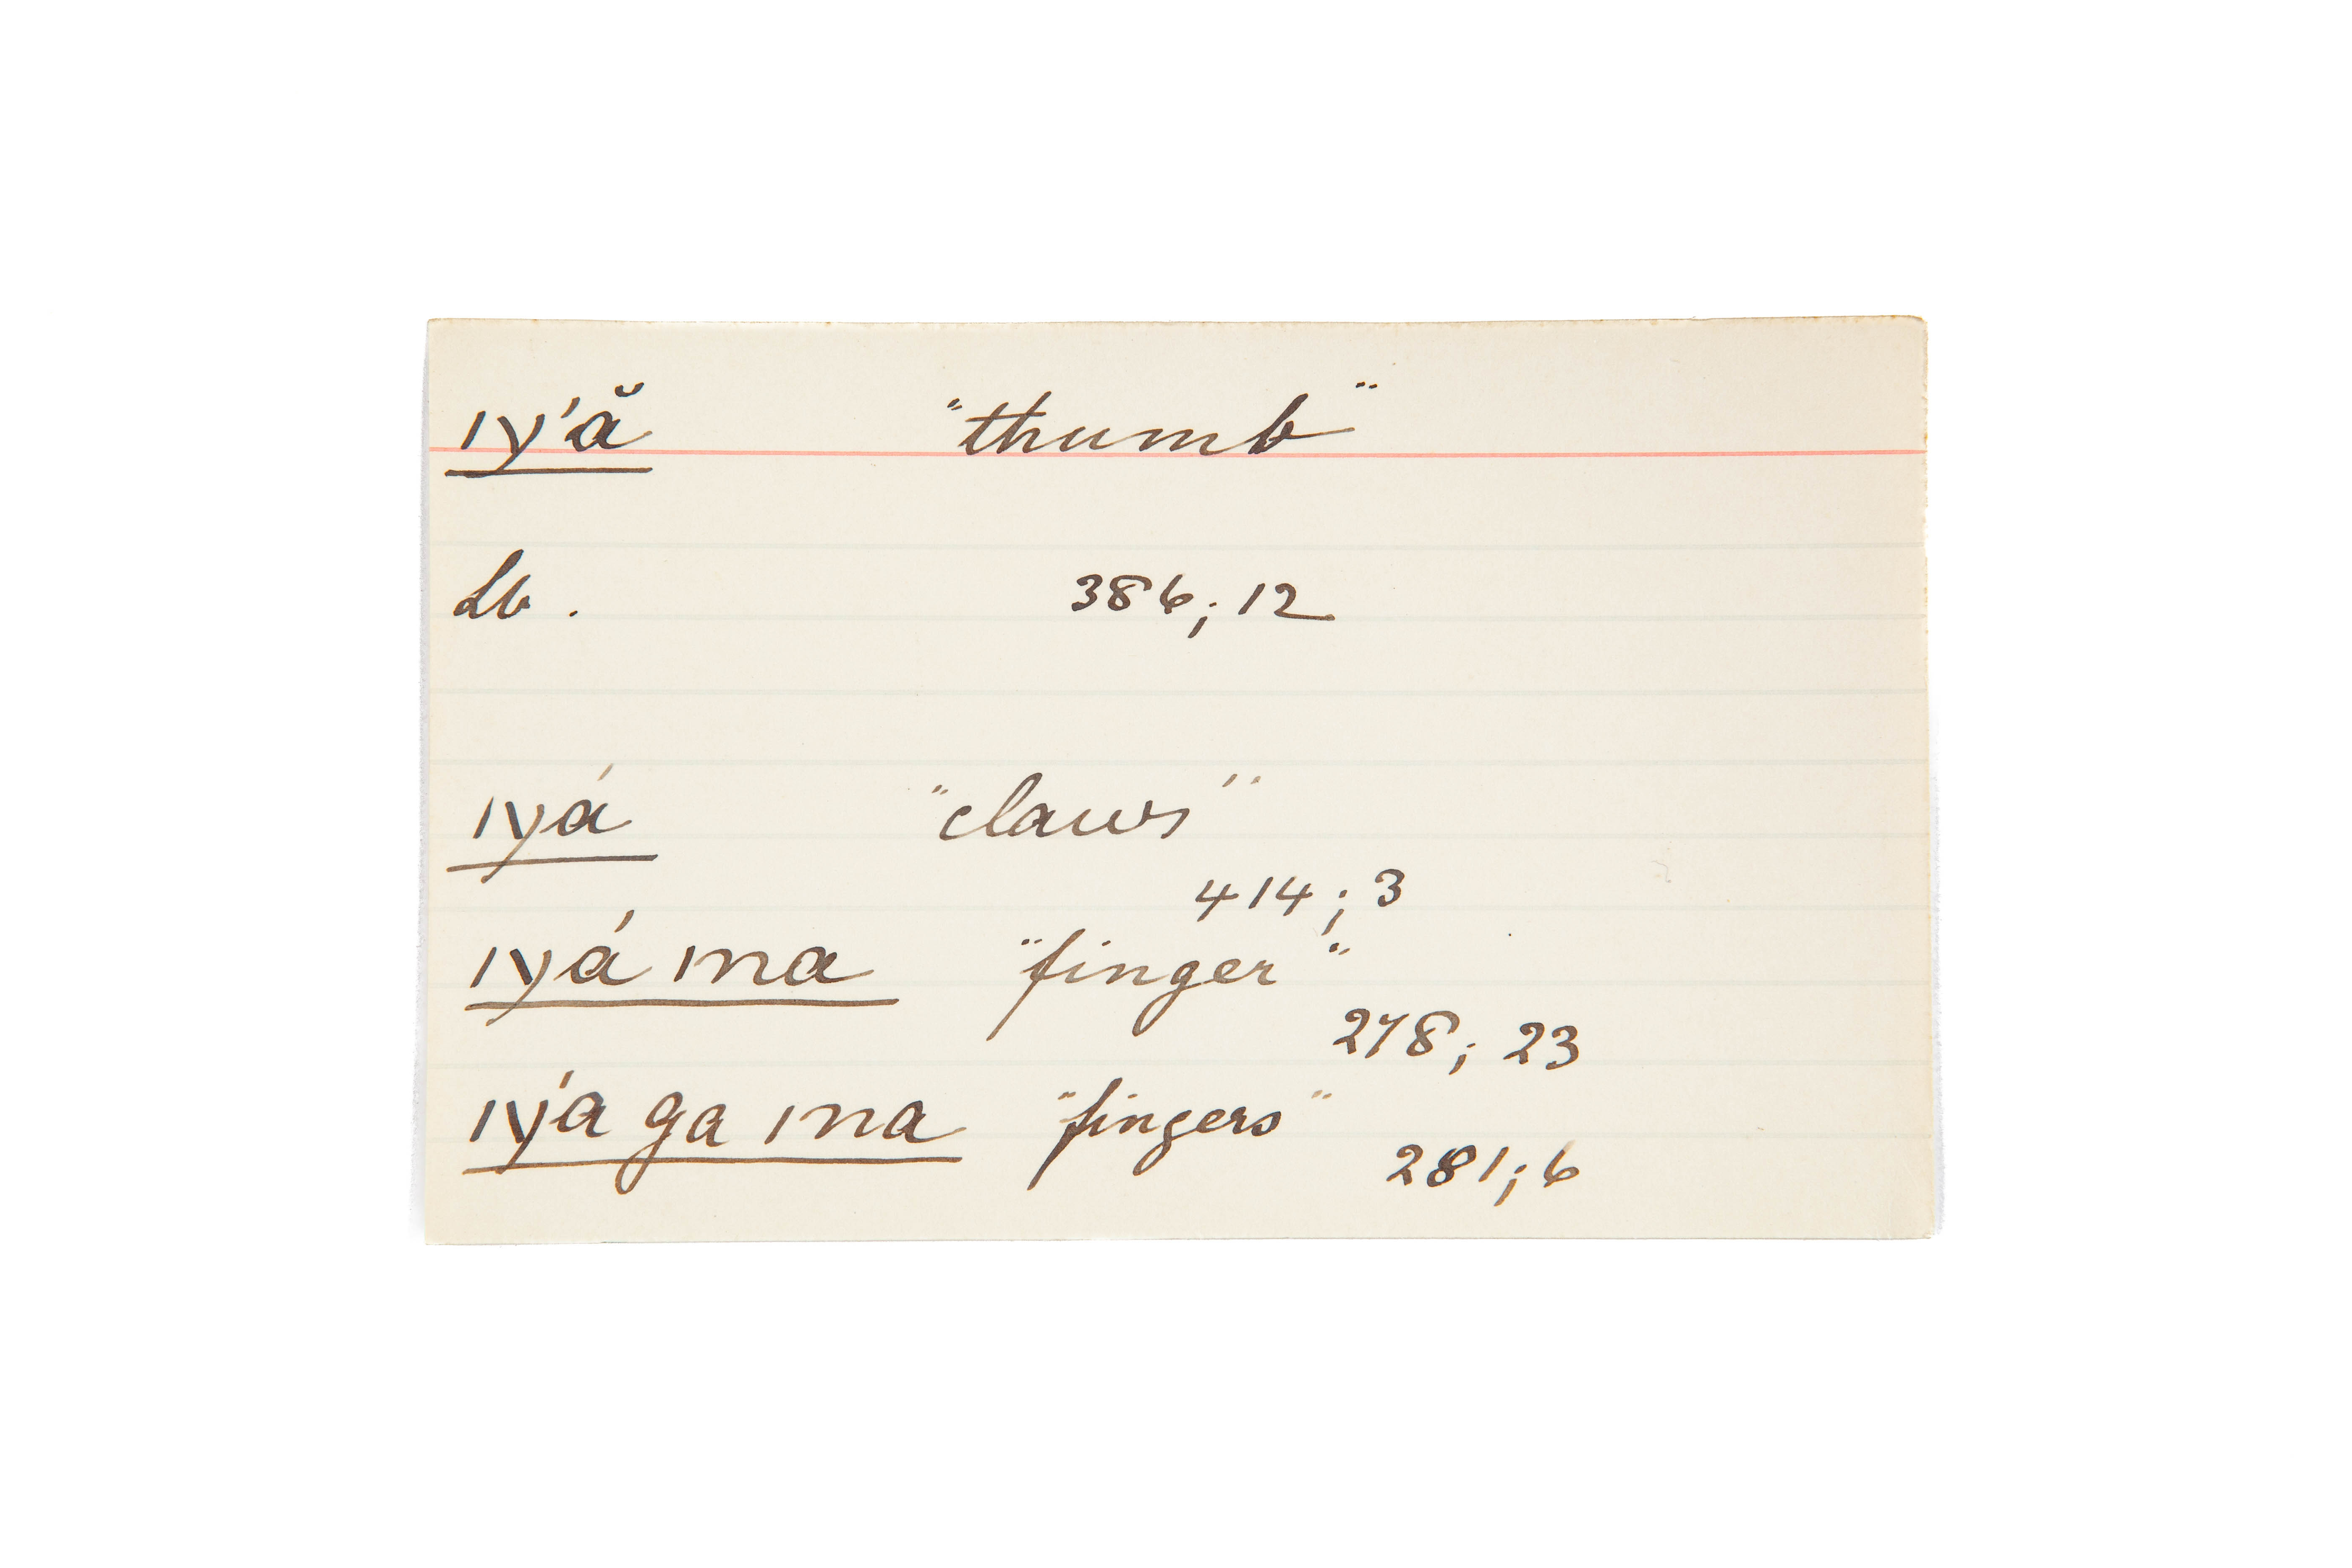 ıy'ă "thumb"
Lb. 386; 12
ıyá "claws"
414; 3
ıyá ına "finger"
278; 23
ıy'a ga ına "fingers"
281; 6